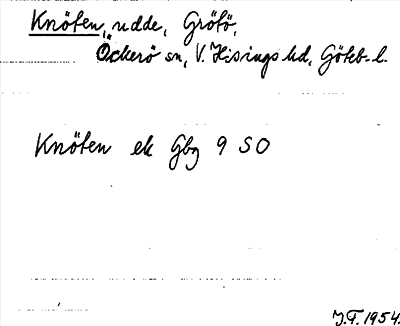 Knöten, udde, Grötö,
Öckerö sn, V. Hisings hd, Göteb. l.
Knöten ek Gbg 9 SO
J.F. 1954.